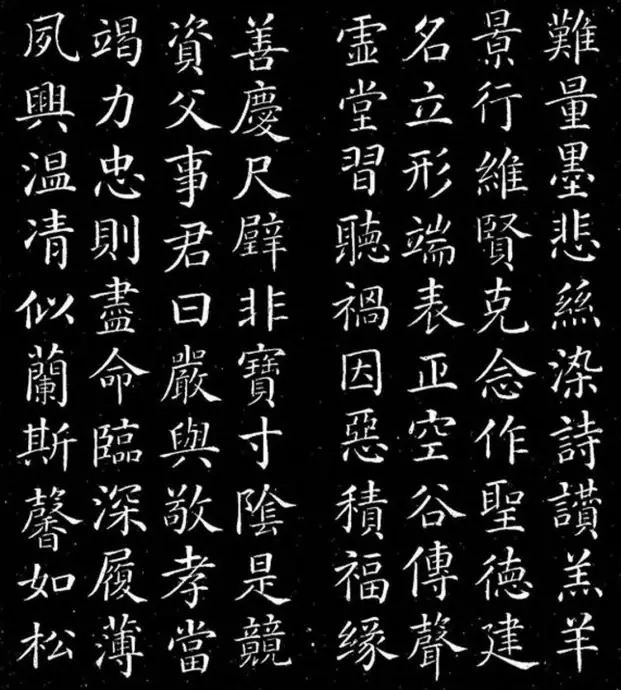 難量墨悲絲染詩讚羔羊
景行維賢克念作聖德建
名立形端表正空谷傳聲
虛堂習聽禍因惡積福緣
善慶尺璧非寶寸陰是競
資父事君曰嚴與敬孝當
竭力忠則盡命臨深履薄
夙興温凊似蘭斯馨如松